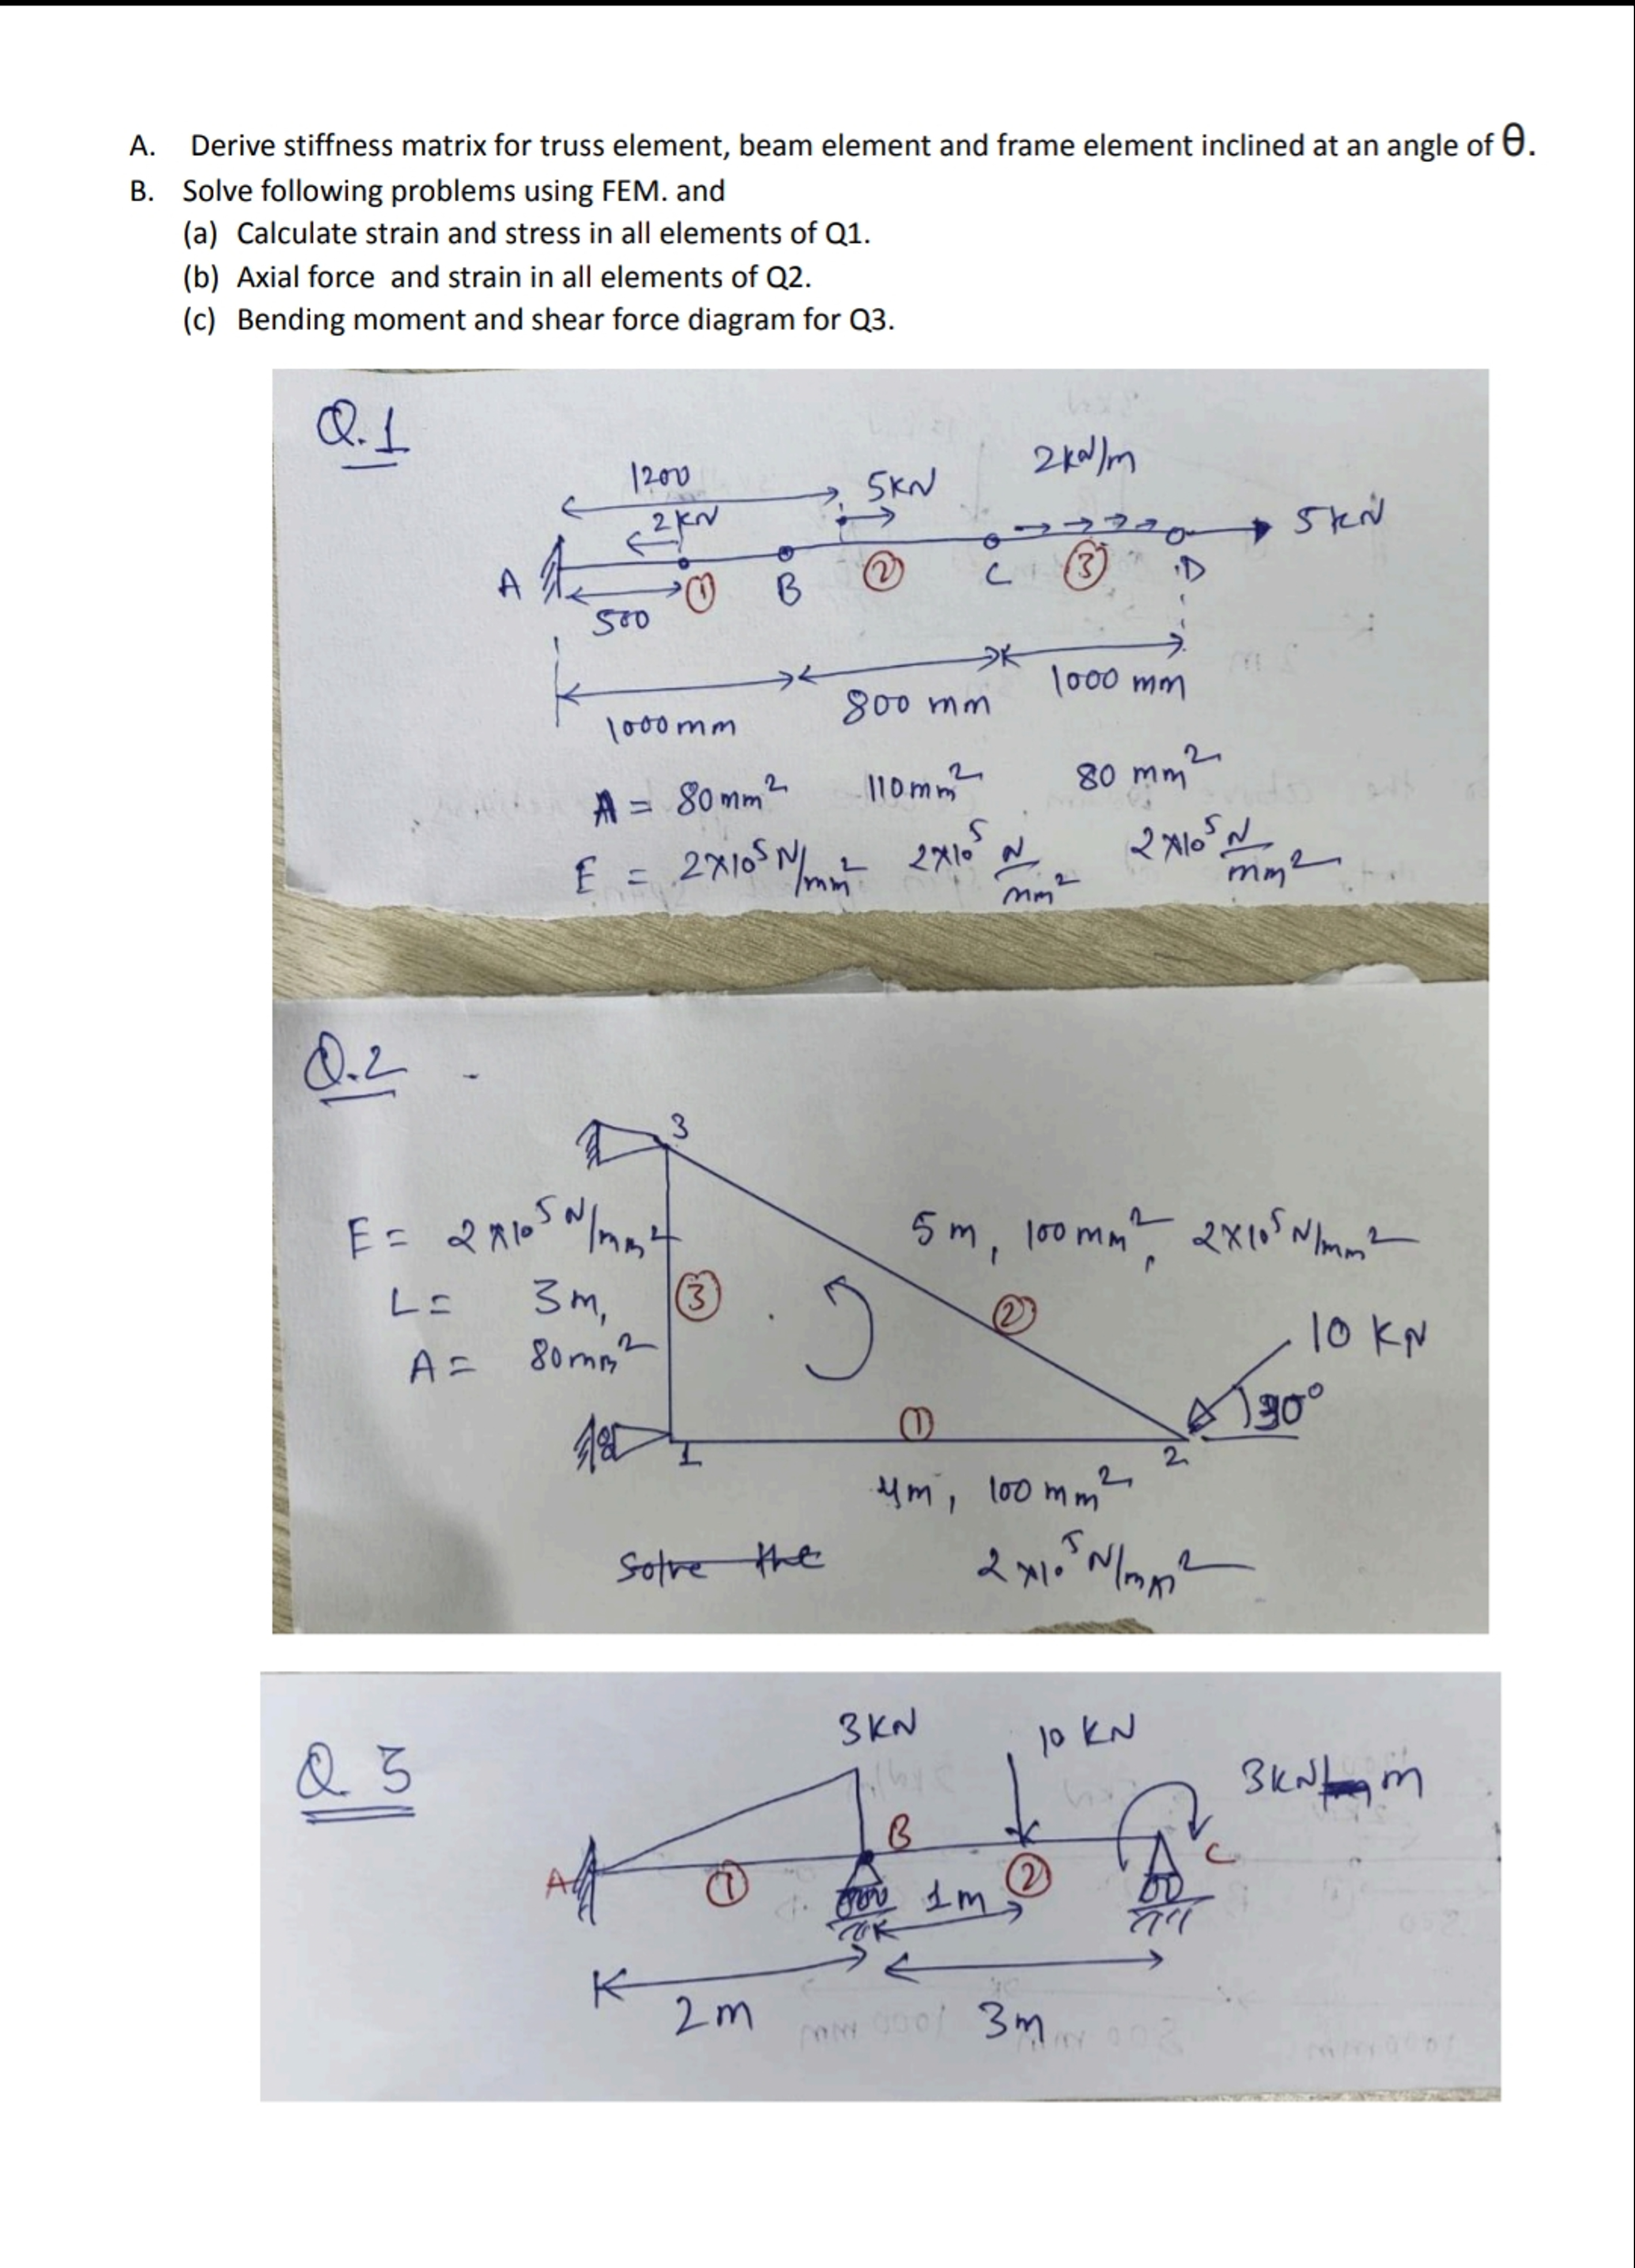 A. Derive stiffness matrix for truss element, beam element and frame element inclined at an angle of θ.
B. Solve following problems using FEM. and
(a) Calculate strain and stress in all elements of Q1.
(b) Axial force and strain in all elements of Q2.
(c) Bending moment and shear force diagram for Q3.
Q.1
2kN/m
1200
5KN
2KN
5KN
A
①
B
②
C
③
D
500
1000mm
800 mm
1000 mm
A = 80mm² 110mm² 80 mm²
E = 2×10⁵ N/mm² 2×10⁵ N/mm² 2×10⁵ N/mm²
Q.2
3
E = 2×10⁵ N/mm²
5m, 100mm², 2×10⁵ N/mm²
L = 3m,
③
②
A = 80mm²
10 KN
30°
①
1
2
4m, 100mm²
Solve the
2×10⁵ N/mm²
Q 3
3KN
10 KN
3KN m
B
A
①
②
C
1m
2m
3m